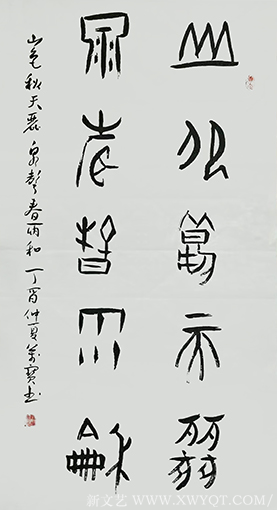 山色秋天麗
泉聲春雨和
山色秋天麗 泉聲春雨和 丁酉仲夏
新文艺 WWW.XWYQT.COM